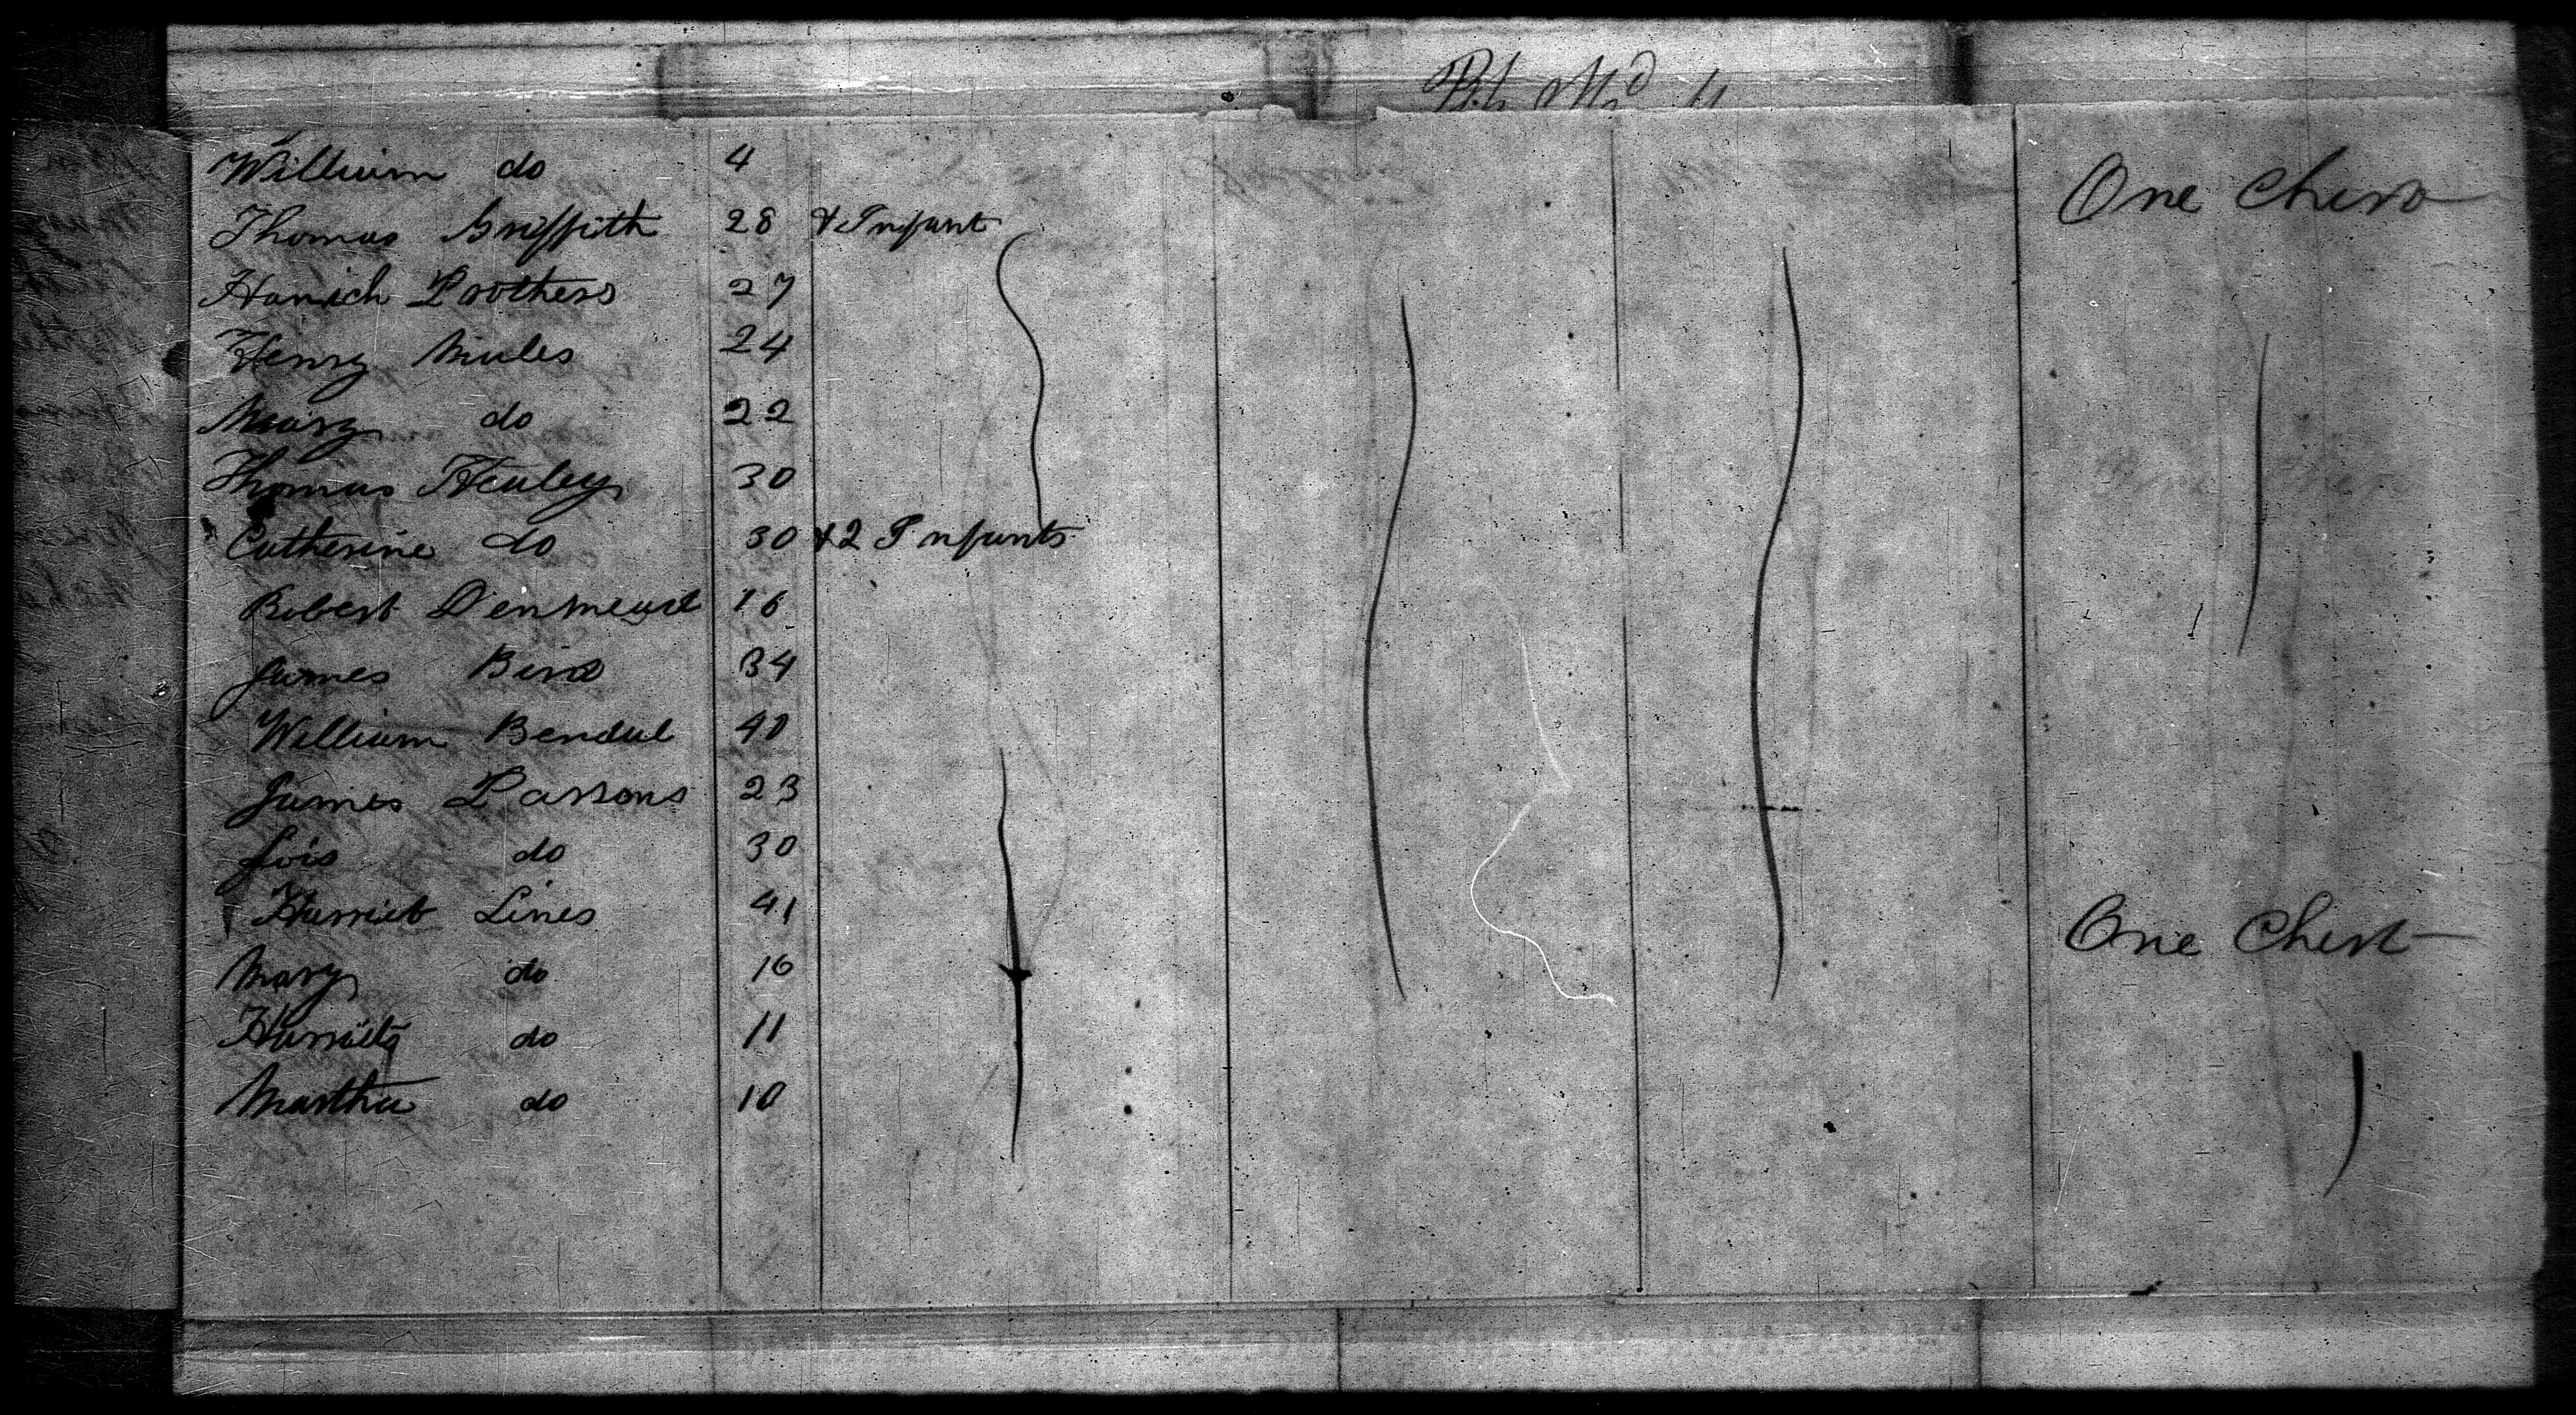 William do 4 One Chest
Thomas Griffith 28 & Infant
Hanich Prothers 27
Henry Miles 24
Mary do 22
Thomas Henley 30
Catherine do 30 & 2 Infants
Robert Denmead 16
James Bird 34
William Bendal 40
James Parsons 23
Lois do 30
Harriet Lines 41 One Chest
Mary do 16
Harriett do 11
Martha do 10